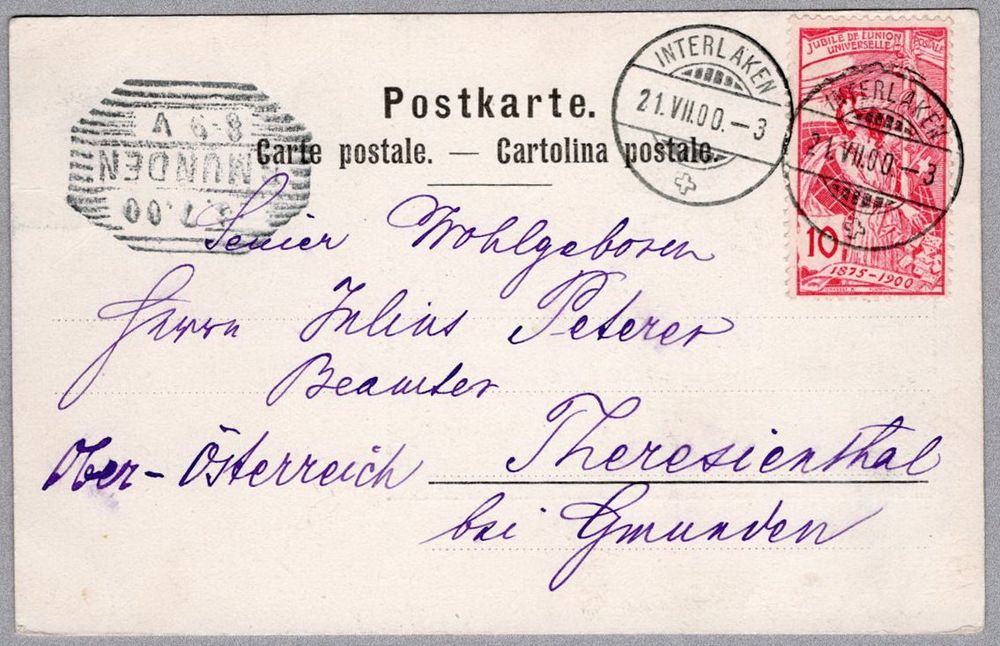 Postkarte.
Carte postale. — Cartolina postale.
INTERLAKEN
21.VII.00.–3
JUBILÉ DE L'UNION
UNIVERSELLE POSTALE
INTERLAKEN
21.VII.00–3
10
1875–1900
GMUNDEN
.7.00
8-9 V
Seiner Wohlgeboren
Herrn Julius Peterer
Beamter
Theresienthal
bei Gmunden
Ober-Österreich